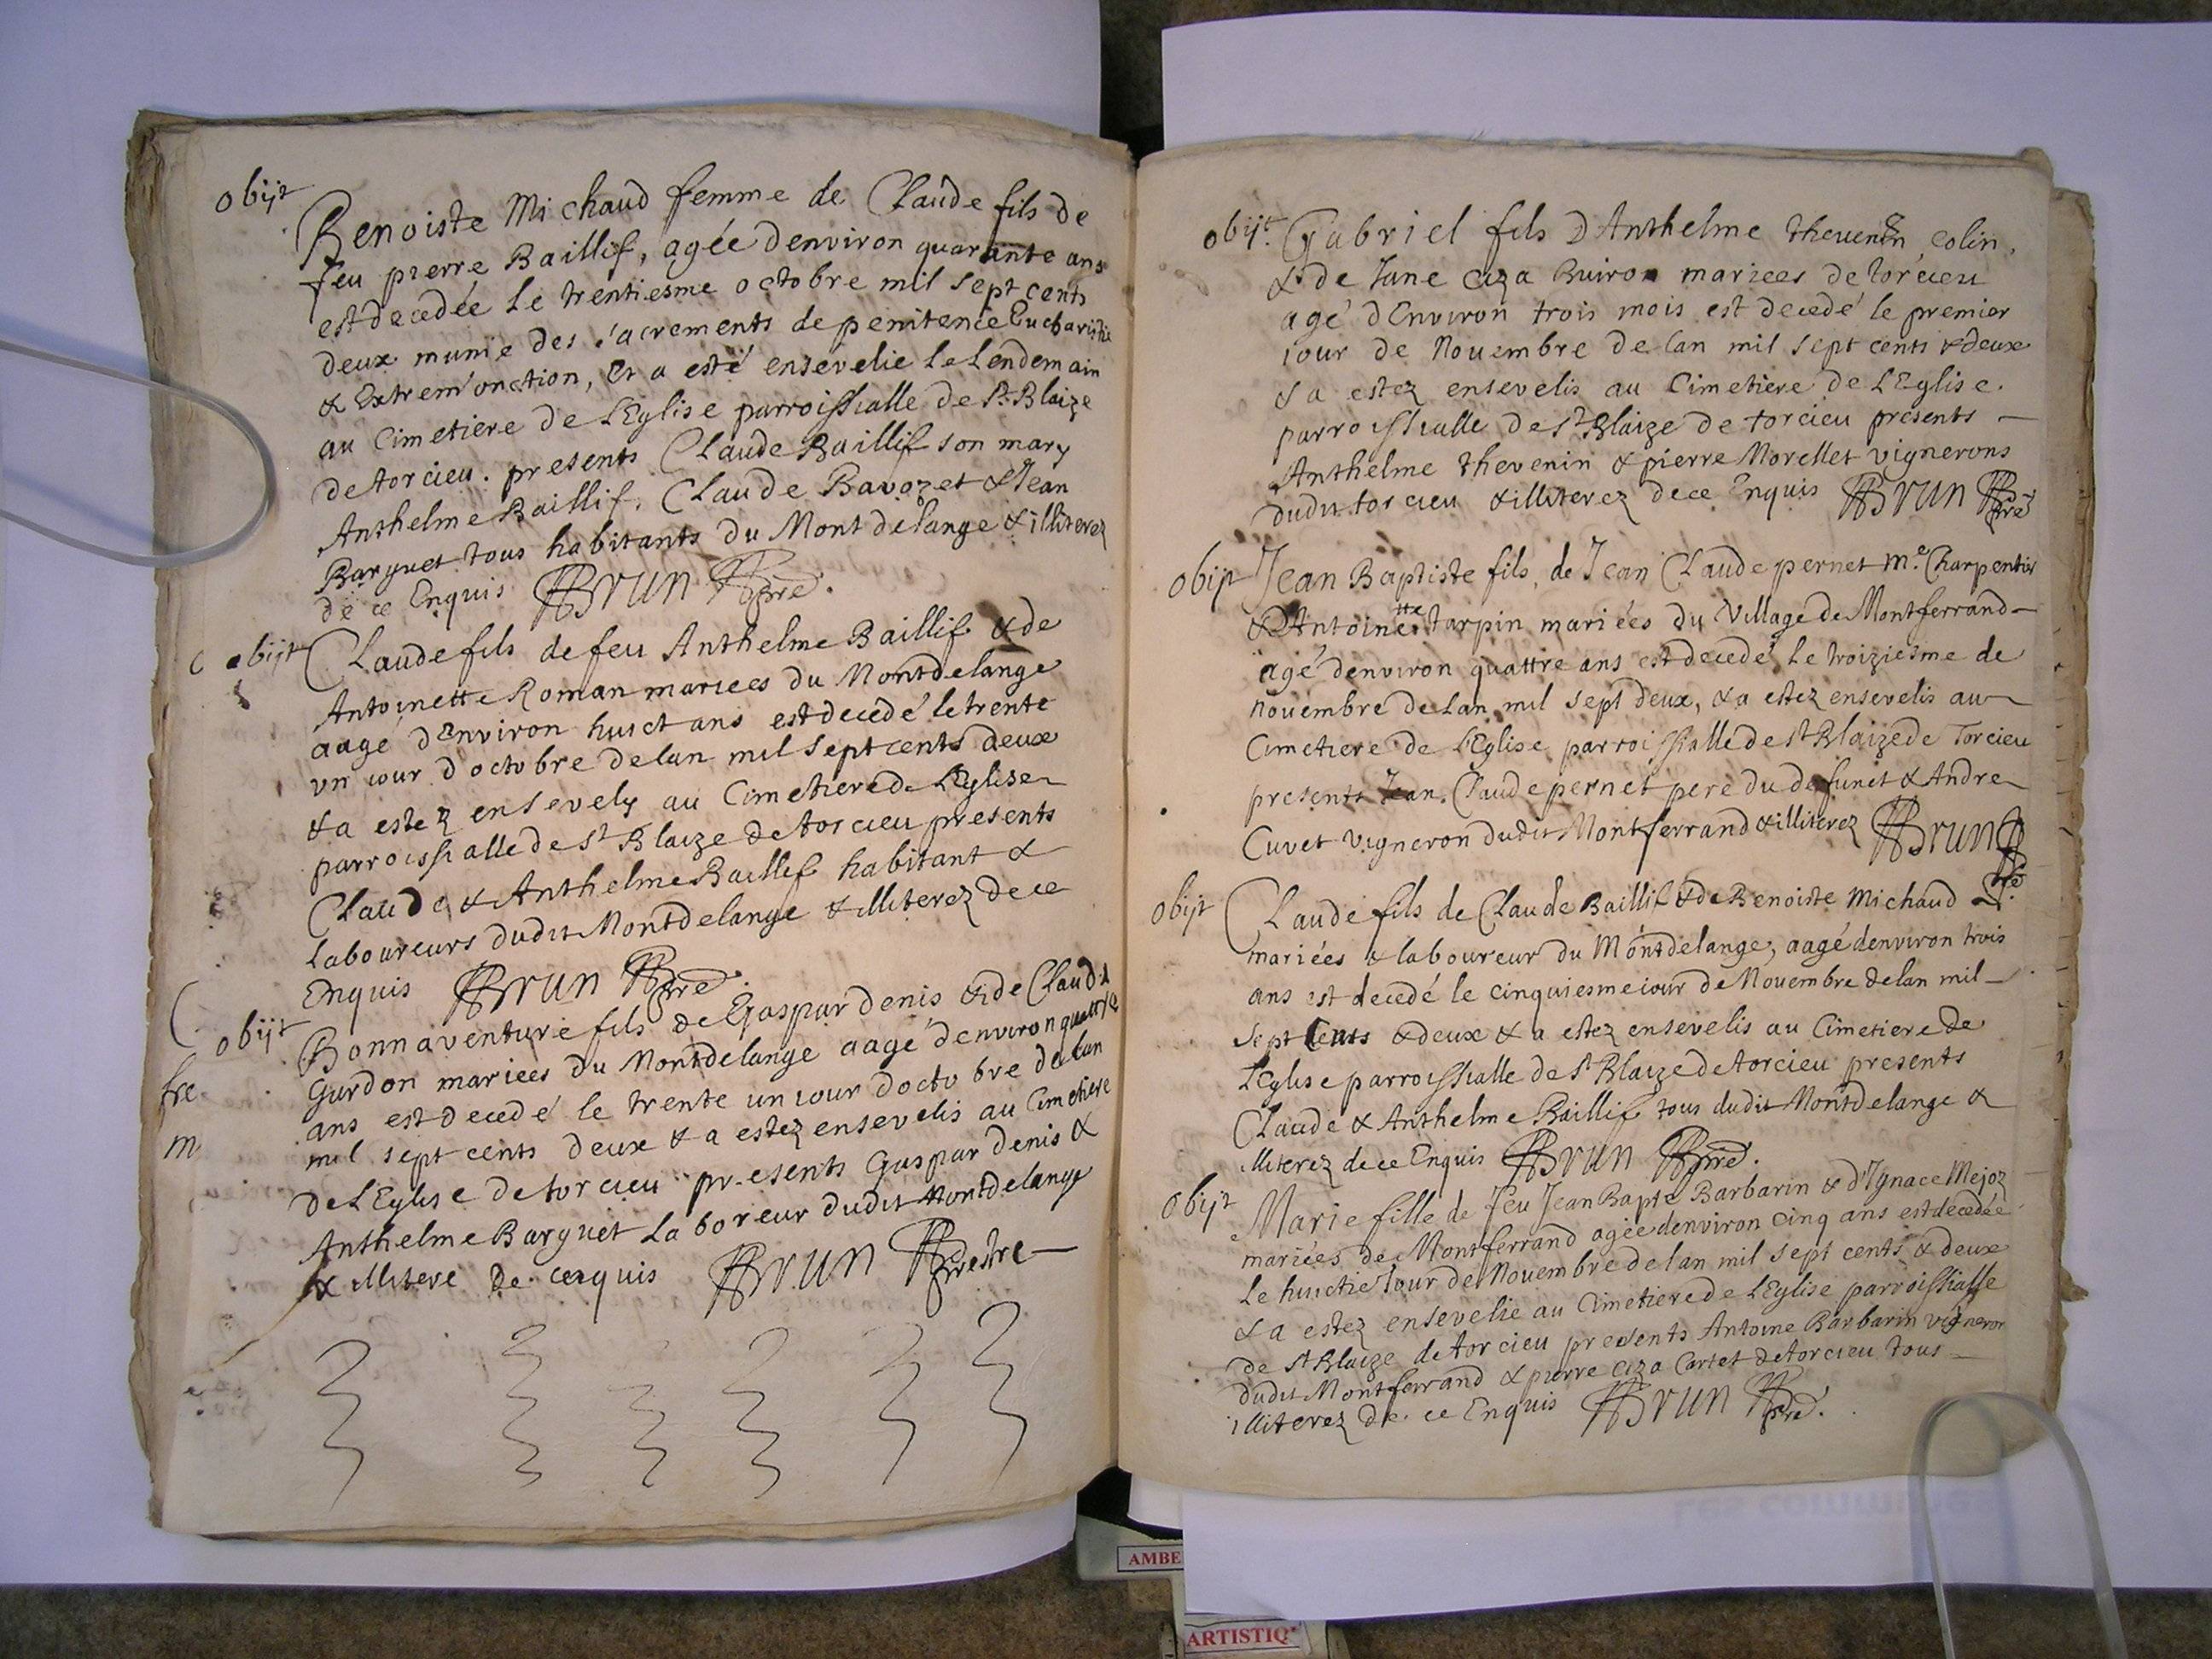 obijt
Benoiste Michaud femme de Claude fils de
feu pierre Baillif, agée denviron quarante ans
est decedée le trentiesme octobre mil sept cents
deux munie des sacrements de penitence Eucharistie
& Extrem'onction, Et a esté ensevelie le Lendemain
au Cimetiere de L'Eglise parroissialle de St Blaize
de torcieu. presents Claude Baillif son mary
Anthelme Baillif, Claude Bavozet & Jean
Barquet tous habitants du Mont de lange & illiterez
de ce Enquis Brun pre.
obijt
Claude fils de feu Anthelme Baillif & de
Antoinette Roman mariees du Montdelange
aagé dEnviron huict ans est decedé le trente
vn iour d'octobre de lan mil sept cents deux
& a estez ensevely au Cimetiere de L'Eglise
parroissialle de St Blaize de torcieu presents
Claude & Anthelme Baillif habitant &
Laboureurs dudit Montdelange & illiterez de ce
Enquis Brun pre.
obijt
Bonnaventure fils de Gaspar denis & de Claud
Gurdon mariees du Montdelange aagé d'environ quattre
ans est decedé le trente un iour doctobre de lan
mil sept cents deux & a estez ensevelis au Cimetiere
de L'Eglise de torcieu presents Gaspar denis &
Anthelme Barquet Laboreur dudit Montdelange
& illitere de cenquis Brun prestre
fre
m
obijt. Gabriel fils D'Anthelme thevenin colin,
& de Jane ciza Buiron mariees de torcieu
agé dEnviron trois mois est decedé le premier
iour de Nouembre de lan mil sept cents & deux
& a estez ensevelis au Cimetiere de L'Eglise.
parroissialle de St Blaize de torcieu presents
Anthelme thevenin & pierre Morellet vignerons
dudit torcieu & illiterez de ce Enquis Brun pre
obijt Jean Baptiste fils, de Jean Claude pernet me. Charpentier
& D'Antoinette tarpin mariées du Village de Montferrand
agé denviron quattre ans est decedé le troiziesme de
nouembre de Lan mil sept deux, & a estez ensevelis au
Cimetiere de L'Eglise parroissialle de St Blaize de Torcieu
presents Jean. Claude pernet pere du defunct & Andre
Cuvet vigneron dudit Montferrand & illiterez Brun
pre
obijt Claude fils de Claude Baillif & de Benoiste Michaud
mariées & laboureur du Montdelange, aagé denviron trois
ans est decedé le cinquiesme iour de Nouembre de lan mil
sept Cents & deux & a estez ensevelis au Cimetiere de
L'Eglise parroissialle de St Blaize de torcieu presents
Claude & Anthelme Baillif tous dudit Montdelange &
illiterez de ce Enquis Brun pre.
obijt Marie fille de feu Jean Bapte Barbarin & d'Ignace Mejoz
mariées de Montferrand agée denviron cinq ans est decedée
Le huictie Iour de Nouembre de lan mil sept cents & deux
& a estez ensevelie au Cimetiere de L'Eglise parroissialle
de St Blaize de torcieu presents Antoine Barbarin vigneron
dudit Montferrand & pierre ciza Cartet de torcieu tous
illiterez de ce Enquis Brun pre.
AMBE
ARTISTIQ